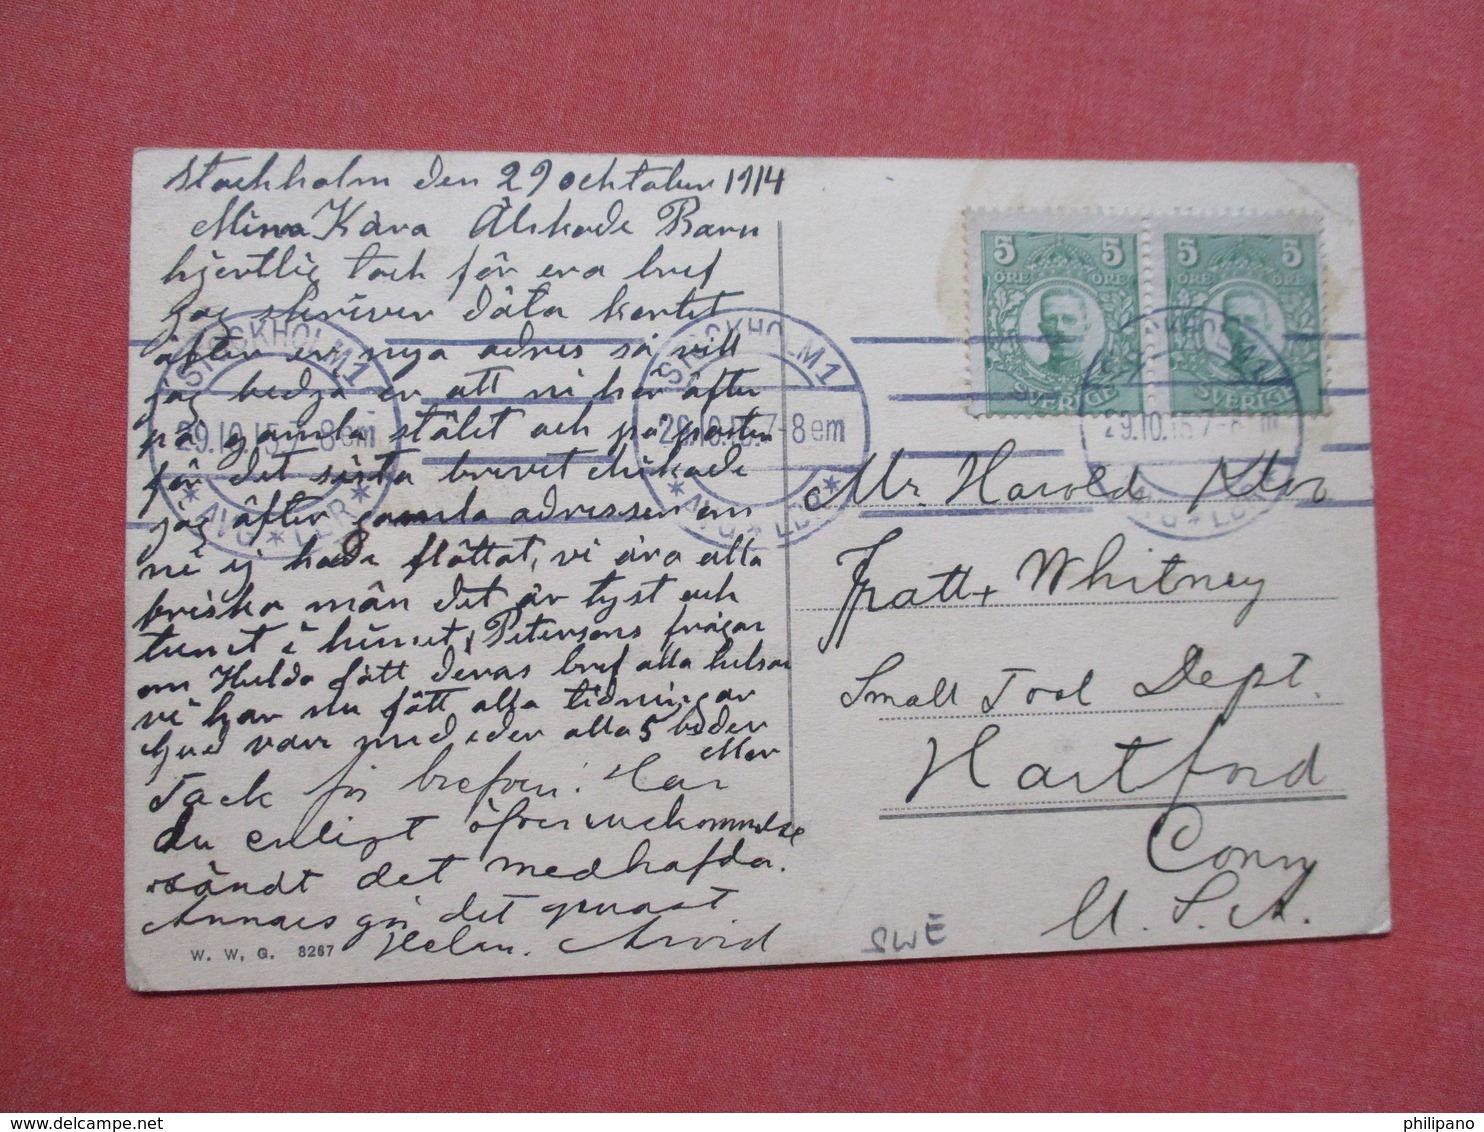 Stockholm den 29 ochtober 1914
Mina Kära Älskade Barn
hjertlig tack för era bref
jag skriver dåta kortet
äfter er nya adres så vill
jag bedja er att ni hör äfter
på gamla stålet och på posten
för det sista brevet chikade
jag äfter gamla adressen om
ni ej hade flöttat, vi ära alla
briska män det är tyst och
tumt i himet, Petersons frågar
om Hulda fått deras bref alla helsar
vi har nu fått alla tidningar
gud vare med eder alla 5 beder
Mor
Tack för brefven! Har
du enligt öfverenskommelse
sändt det medhafda.
Annars går det galant
Helsn. Arvid
W. W. G. 8267
STOCKHOLM 1
29.10.15.7-8em
AVG LBR
STOCKHOLM 1
29.10.15.7-8em
AVG LBR
29.10.15 7-8em
5 5
ÖRE ÖRE
SVERIGE
5 5
ÖRE ÖRE
SVERIGE
Mr. Harold
Pratt + Whitney
Small Tool Dept.
Hartford
Conn
U. S. A.
SWE
philipano